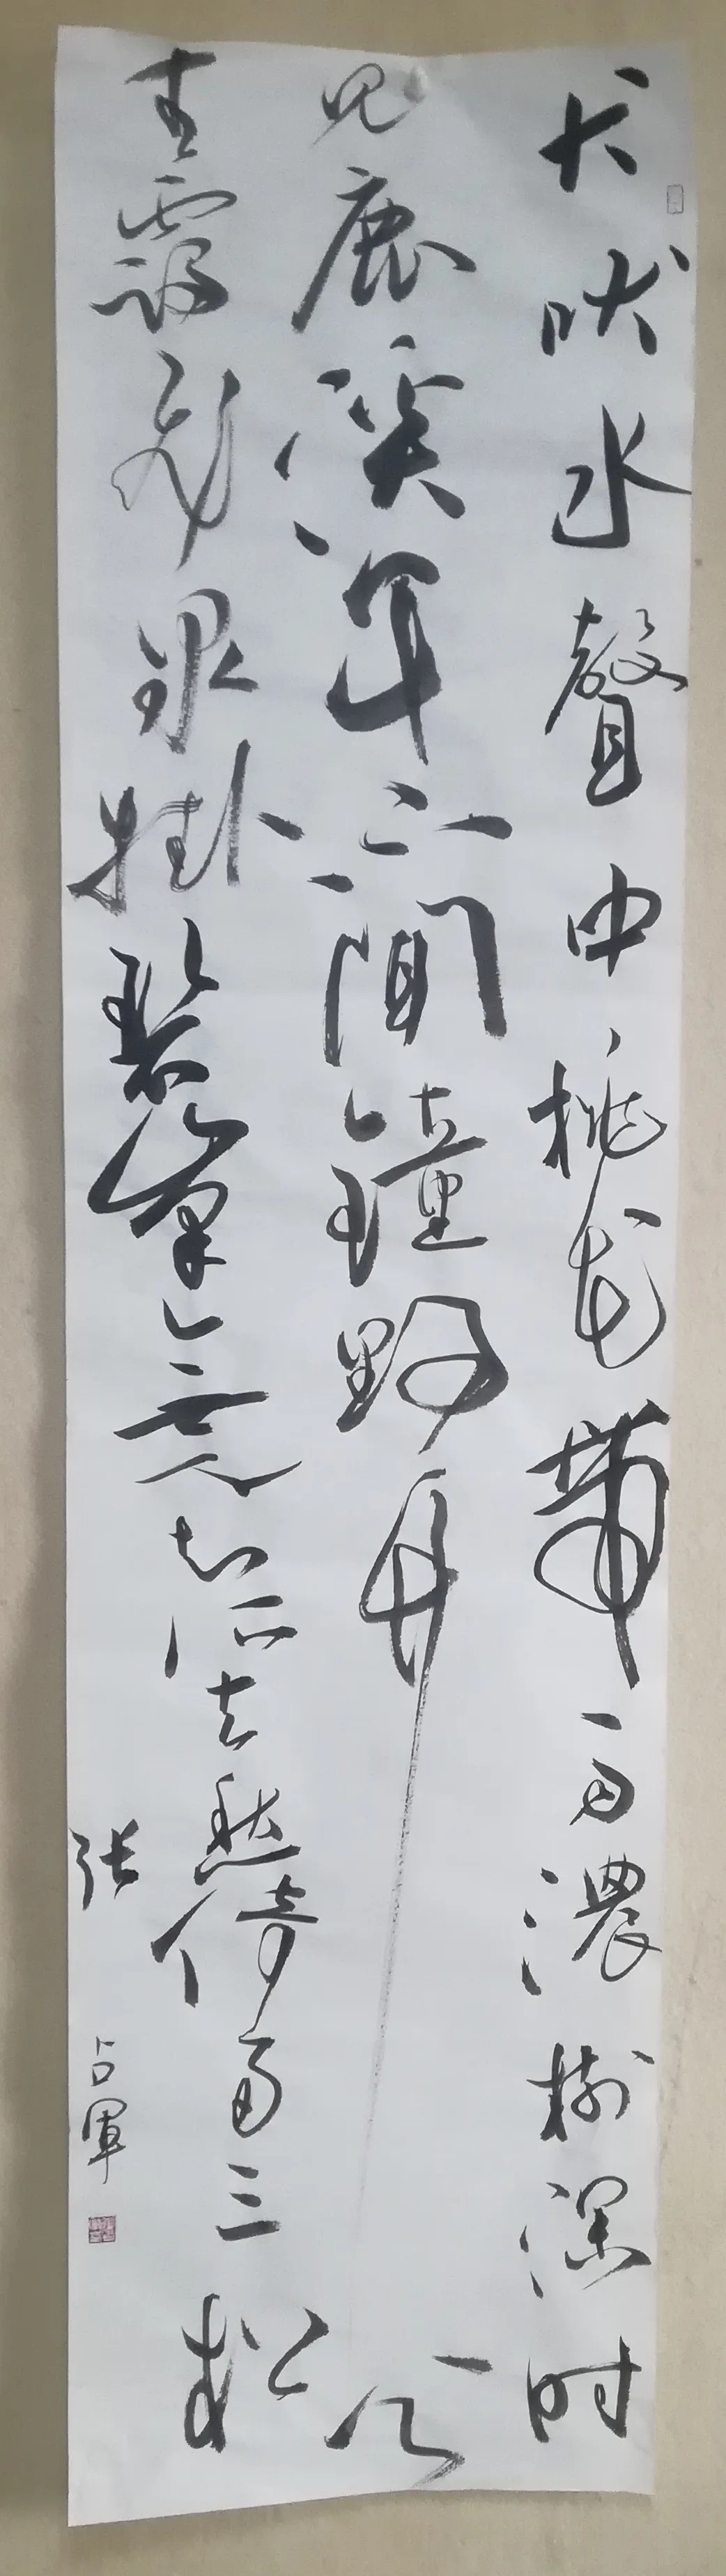 犬吠水聲中桃花帶雨濃樹深时
見鹿溪午不聞鐘野竹分
青靄飛泉掛碧峯無人知所去愁倚兩三松
张占軍